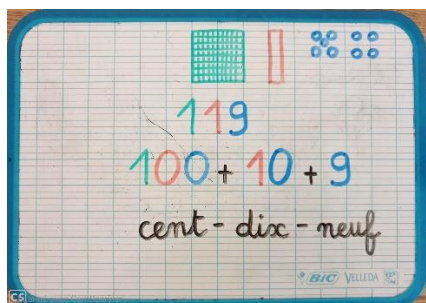 119
100 + 10 + 9
cent - dix - neuf
BIC VELLEDA
CS